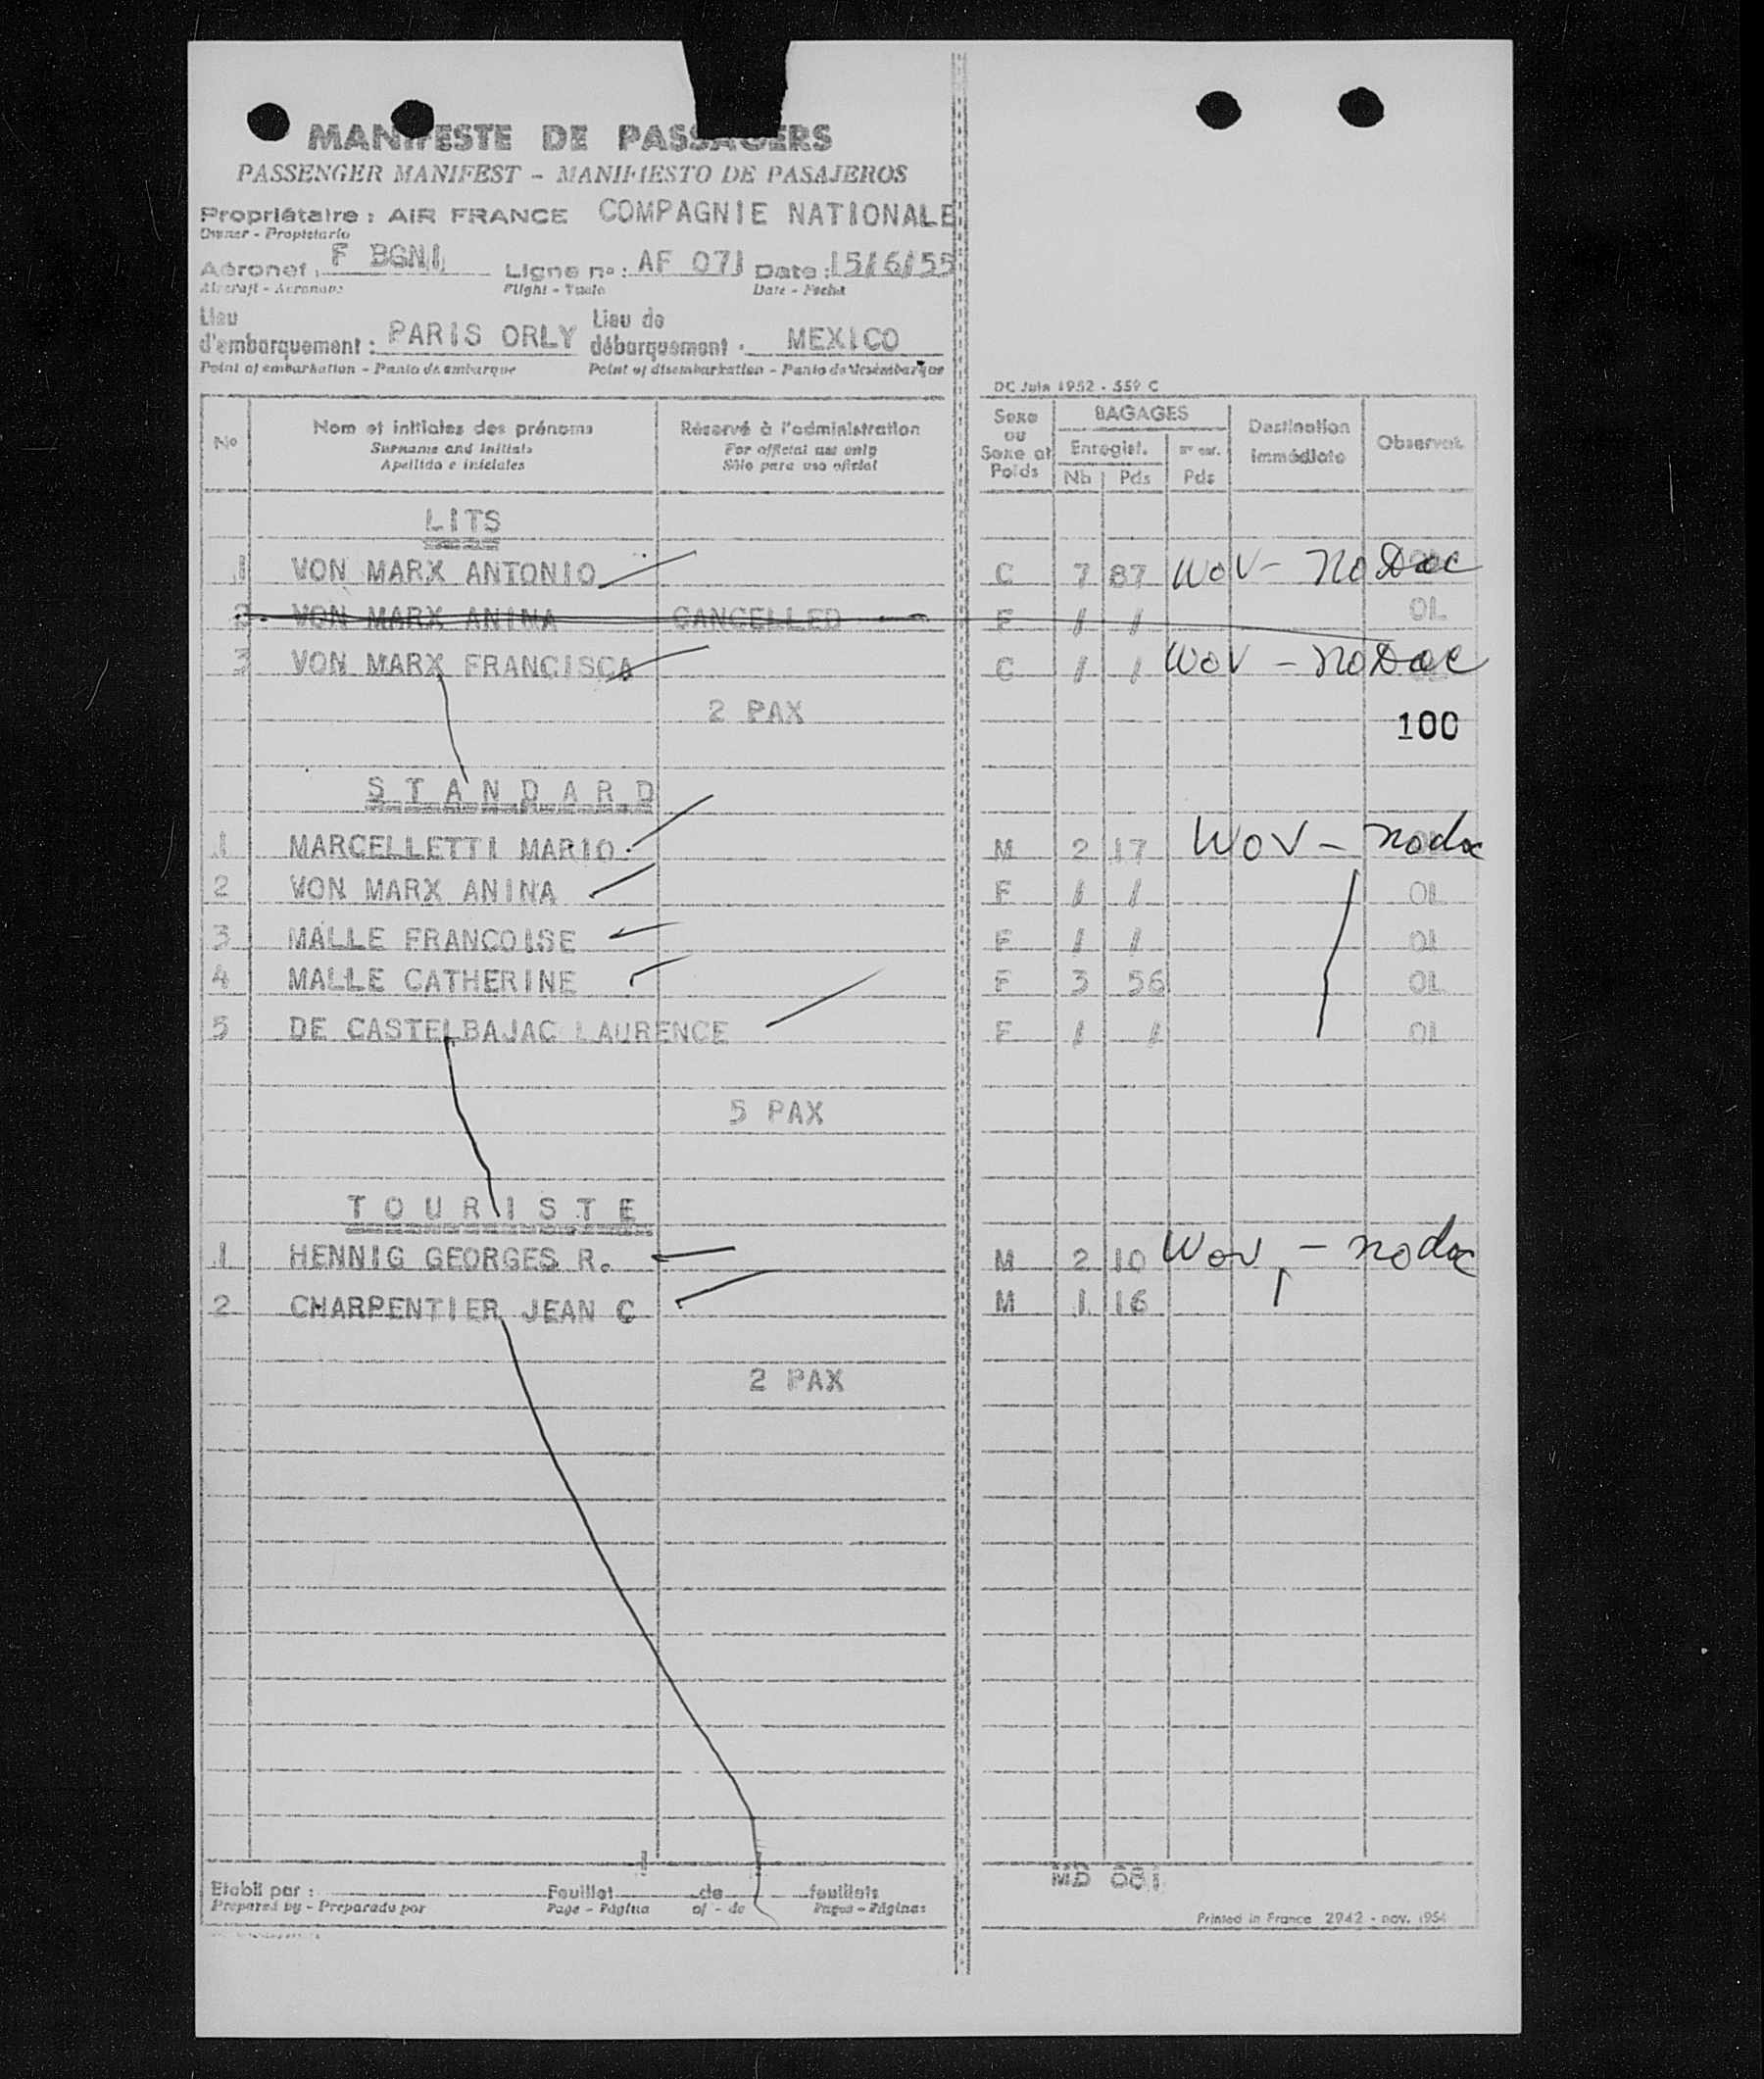 MANIFESTE DE PASSAGERS
PASSENGER MANIFEST - MANIFIESTO DE PASAJEROS
Propriétaire : AIR FRANCE COMPAGNIE NATIONALE
Owner - Propietario
Aéronef : F BGNI Ligne nº : AF 071 Date : 15/6/55
Aircraft - Aeronave Flight - Vuelo Date - Fecha
Lieu d'embarquement : PARIS ORLY Lieu de débarquement : MEXICO
Point of embarkation - Punto de embarque Point of disembarkation - Punto de desembarque
DC Juin 1952 - 559 C
No Nom et initiales des prénoms Réservé à l'administration Sexe ou Sexe et Poids BAGAGES Destination immédiate Observat.
Surname and initials For official use only Enregist.
Apellido e iniciales Sólo para uso oficial Nb Pds Pds
LITS
1 VON MARX ANTONIO C 7 87 WOV - No Doc
2 VON MARX ANINA CANCELLED F / / OL
3 VON MARX FRANCISCA C / / WOV - No Doc
2 PAX 100
S T A N D A R D
1 MARCELLETTI MARIO. M 2 17 WOV - no doc
2 VON MARX ANINA F / / OL
3 MALLE FRANCOISE F / / OL
4 MALLE CATHERINE F 3 56 OL
5 DE CASTELBAJAC LAURENCE F / / OL
5 PAX
T O U R I S T E
1 HENNIG GEORGES R. M 2 10 WOV - no doc
2 CHARPENTIER JEAN C M 1 16
2 PAX
1 1
Etabli par : Feuillet de feuillets
Prepared by - Preparado por Page - Página of - de Pages - Páginas
MD 001
Printed in France 2942 - nov. 1954